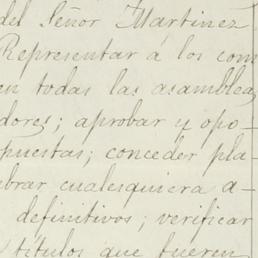 del Señor Martinez
Representar a los com
en todas las asamblea
dores; aprobar y opo-
puestas; conceder pla-
brar cualesquiera a-
definitivos; verificar
títulos que fueren